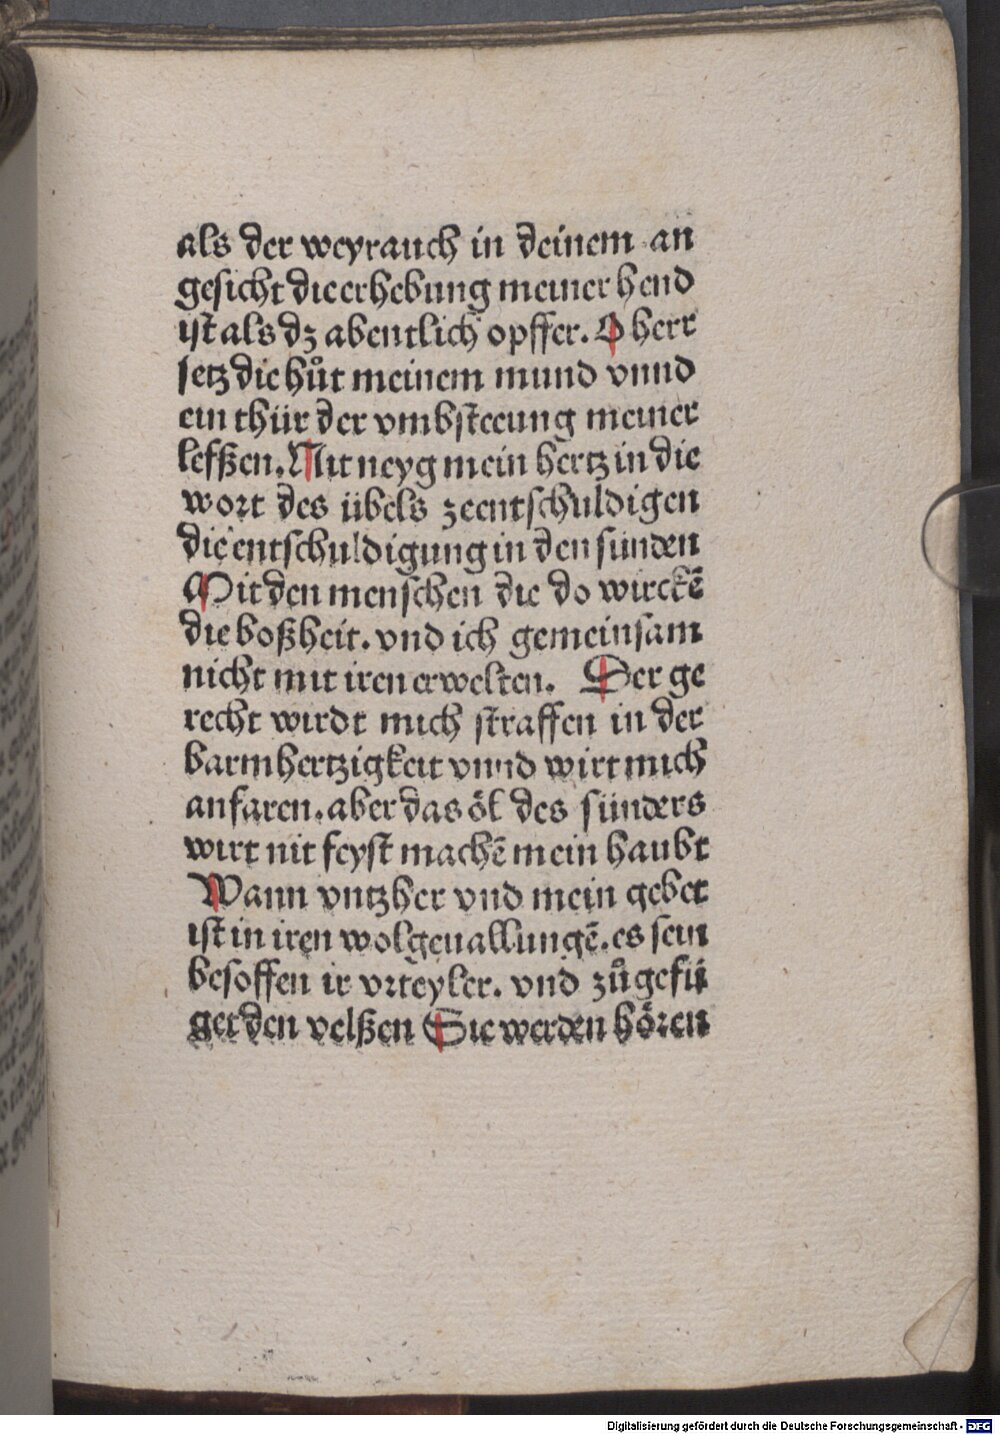 als der weyrauch in deinem an
gesicht die erhebung meiner hend
ist als dz abentlich opffer. O herr
setz die hůt meinem mund vnnd
ein thür der vmbsteeung meiner
lefßen. Nit neyg mein hertz in die
wort des übels zeentschuldigen
die entschuldigung in den sünden
Mit den menschen die do wirckē
die boßheit. vnd ich gemeinsam
nicht mit iren erwelten. Der ge
recht wirdt mich straffen in der
barmhertzigkeit vnnd wirt mich
anfaren. aber das öl des sünders
wirt nit feyst machē mein haubt
Wann vntzher vnd mein gebet
ist in iren wolgeuallungē. es sein
besoffen ir vrteyler. vnd zůgefü
get den velßen Sie werden hören
Digitalisierung gefördert durch die Deutsche Forschungsgemeinschaft - DFG